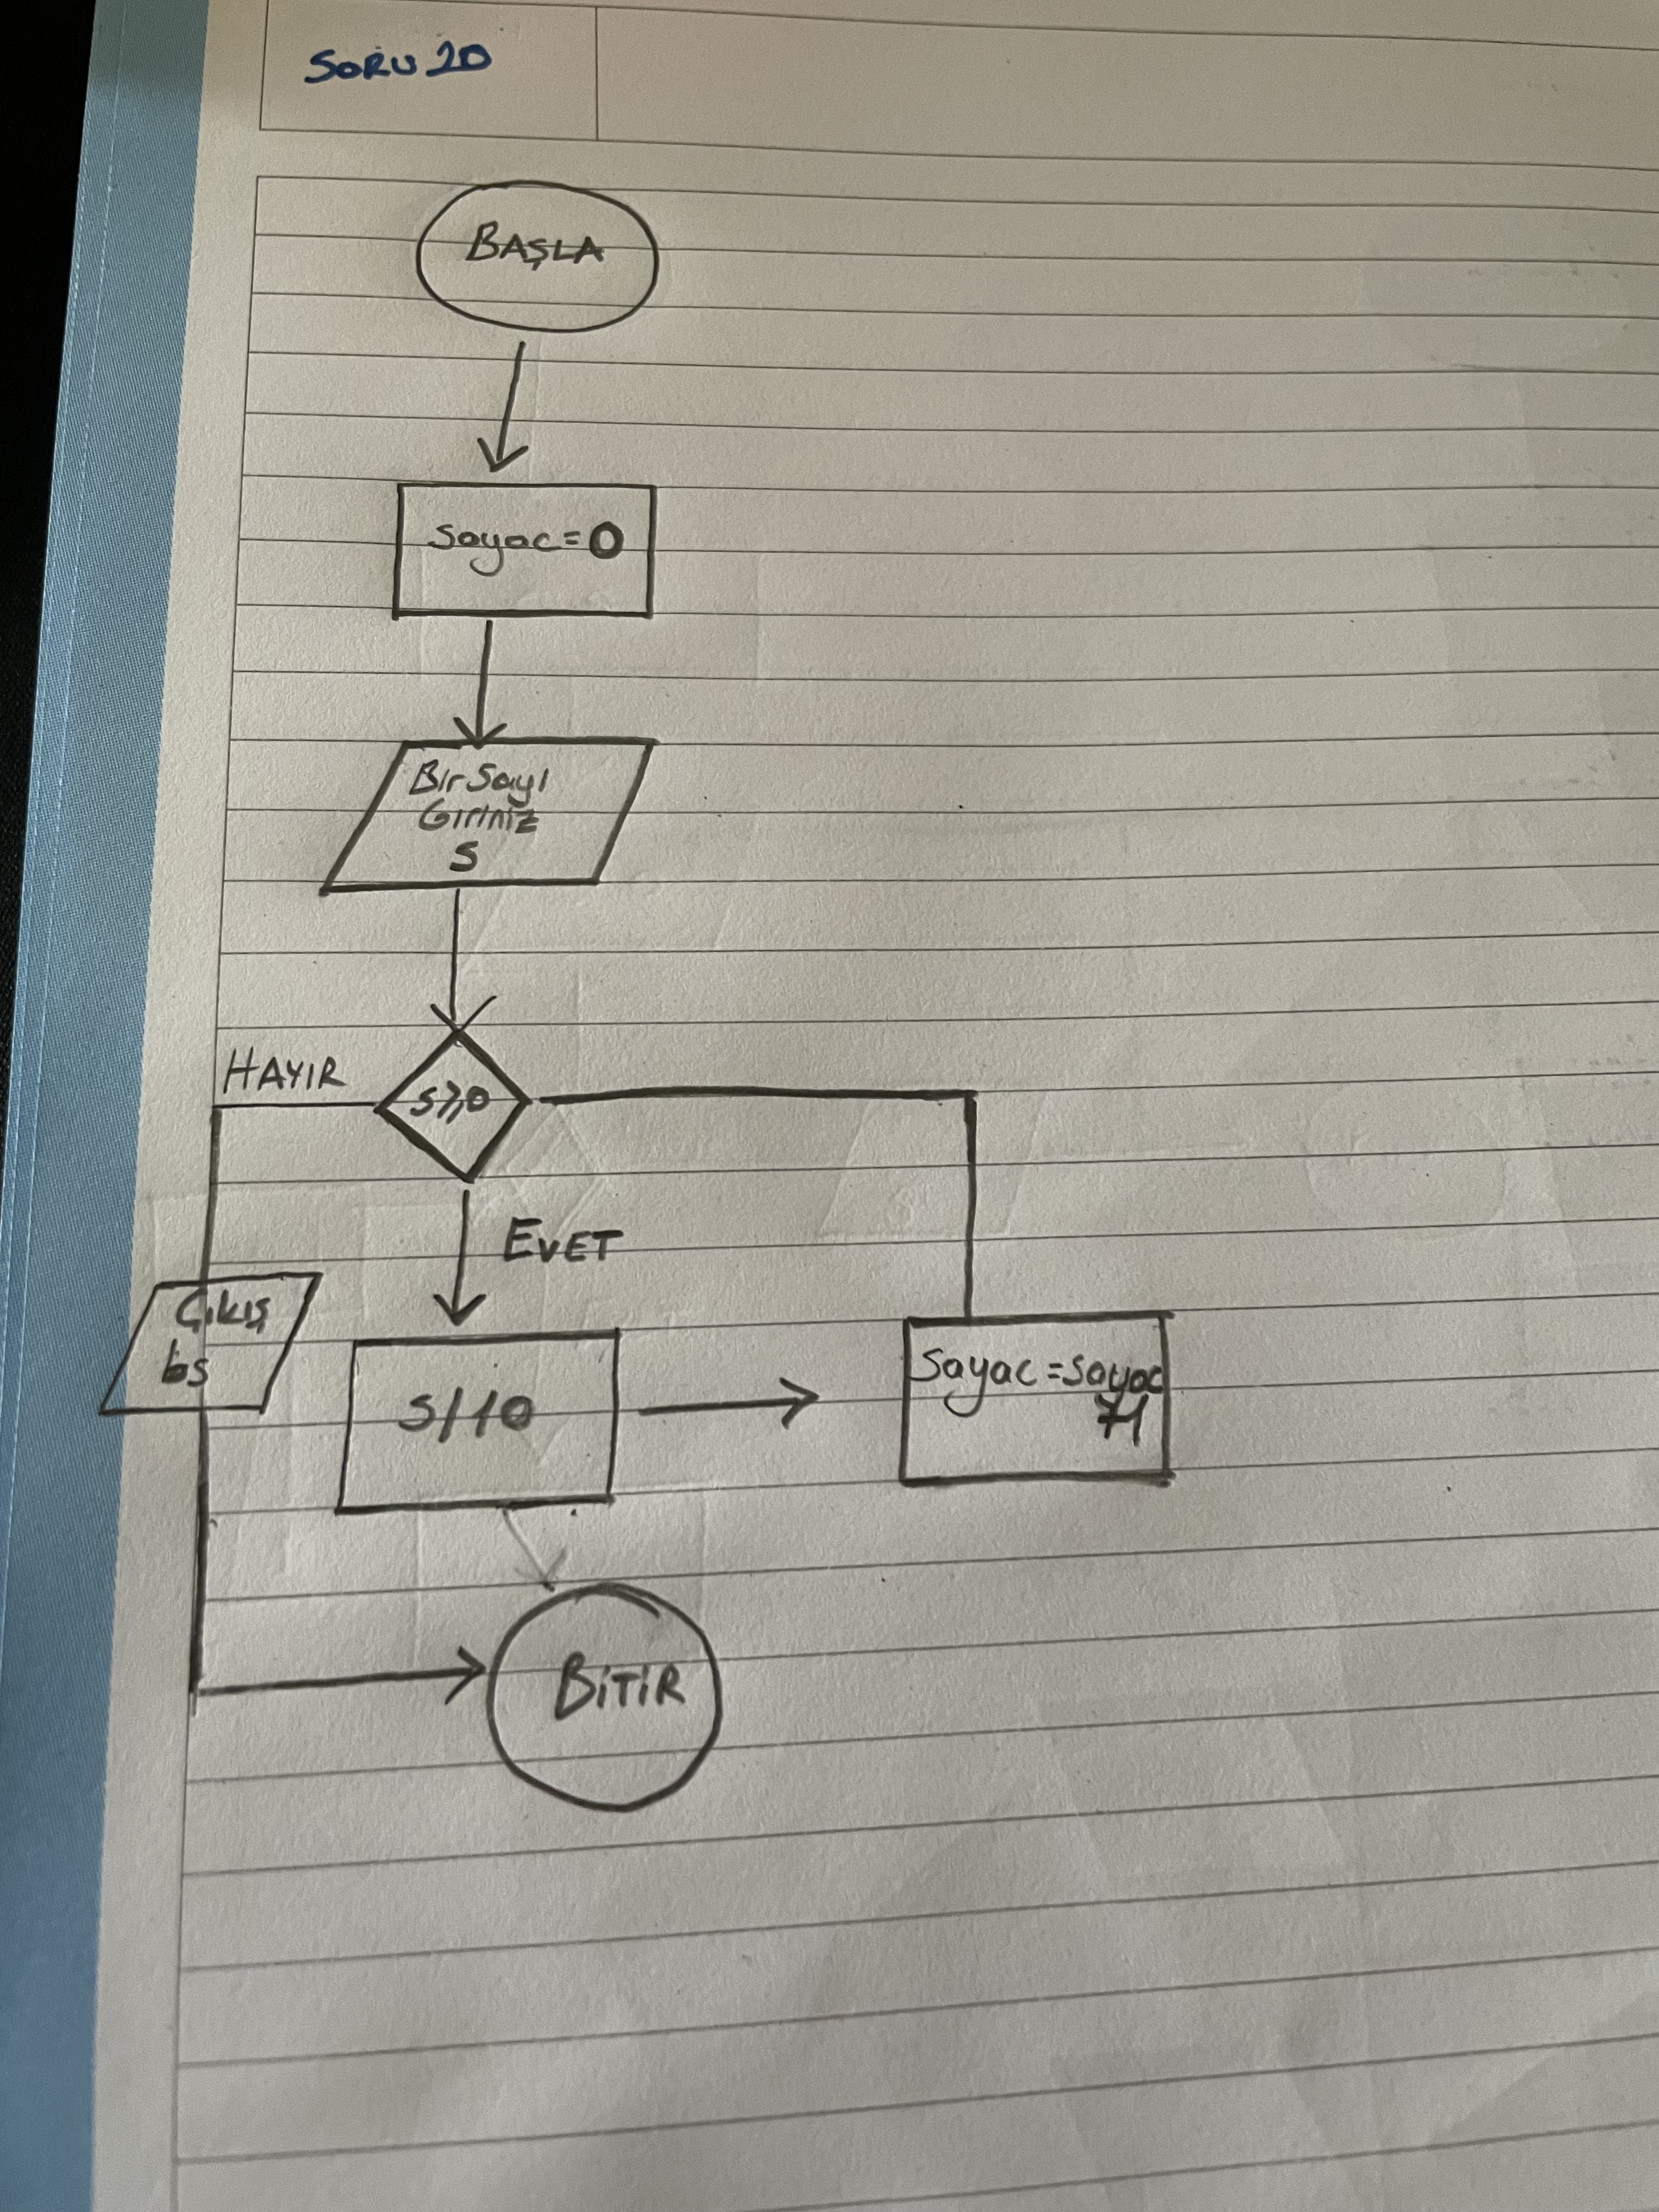 SORU 20
BAŞLA
Sayac=0
Bir Sayı
Giriniz
S
HAYIR
S≥0
EVET
Çıkış
bs
S/10
Sayac=Sayac
+1
BİTİR